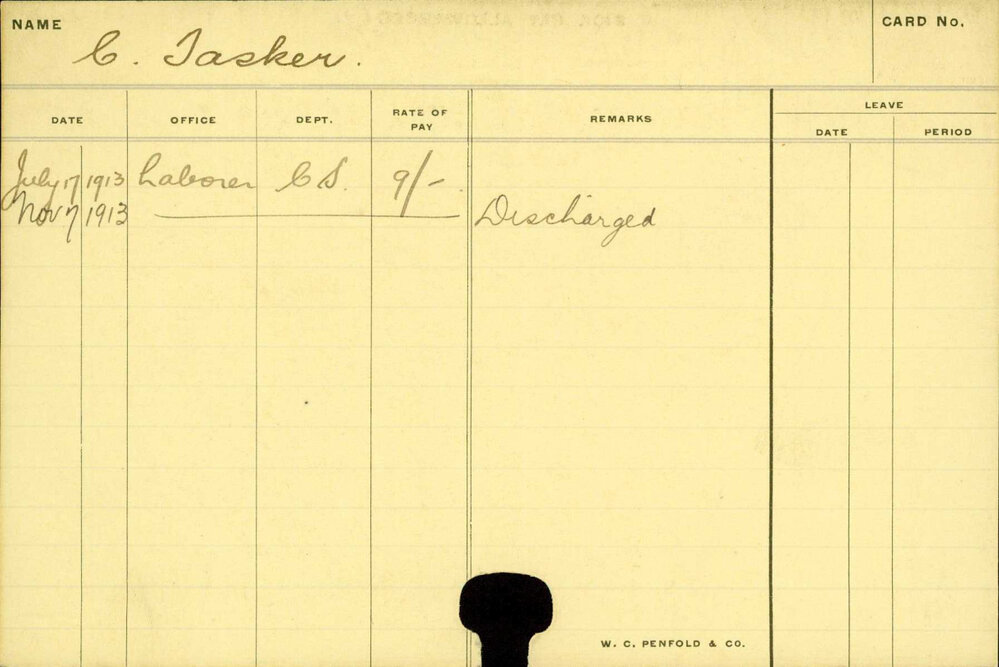 NAME
C. Tasker.
CARD No.
DATE OFFICE DEPT. RATE OF PAY REMARKS LEAVE
DATE PERIOD
July 17 1913 Laborer C S. 9/-
Nov 7 1913 Discharged
W. C. PENFOLD & CO.